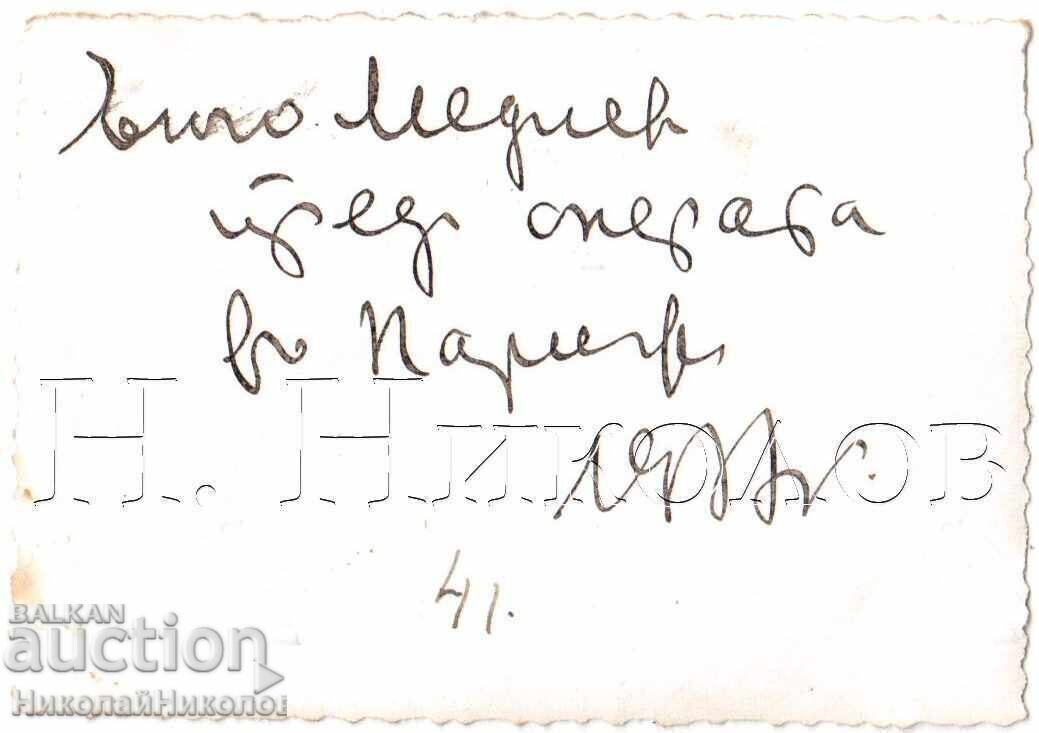 Медиев
пред операта
въ Парижъ
Н. Николов
41.
BALKAN
auction
НиколайНиколов